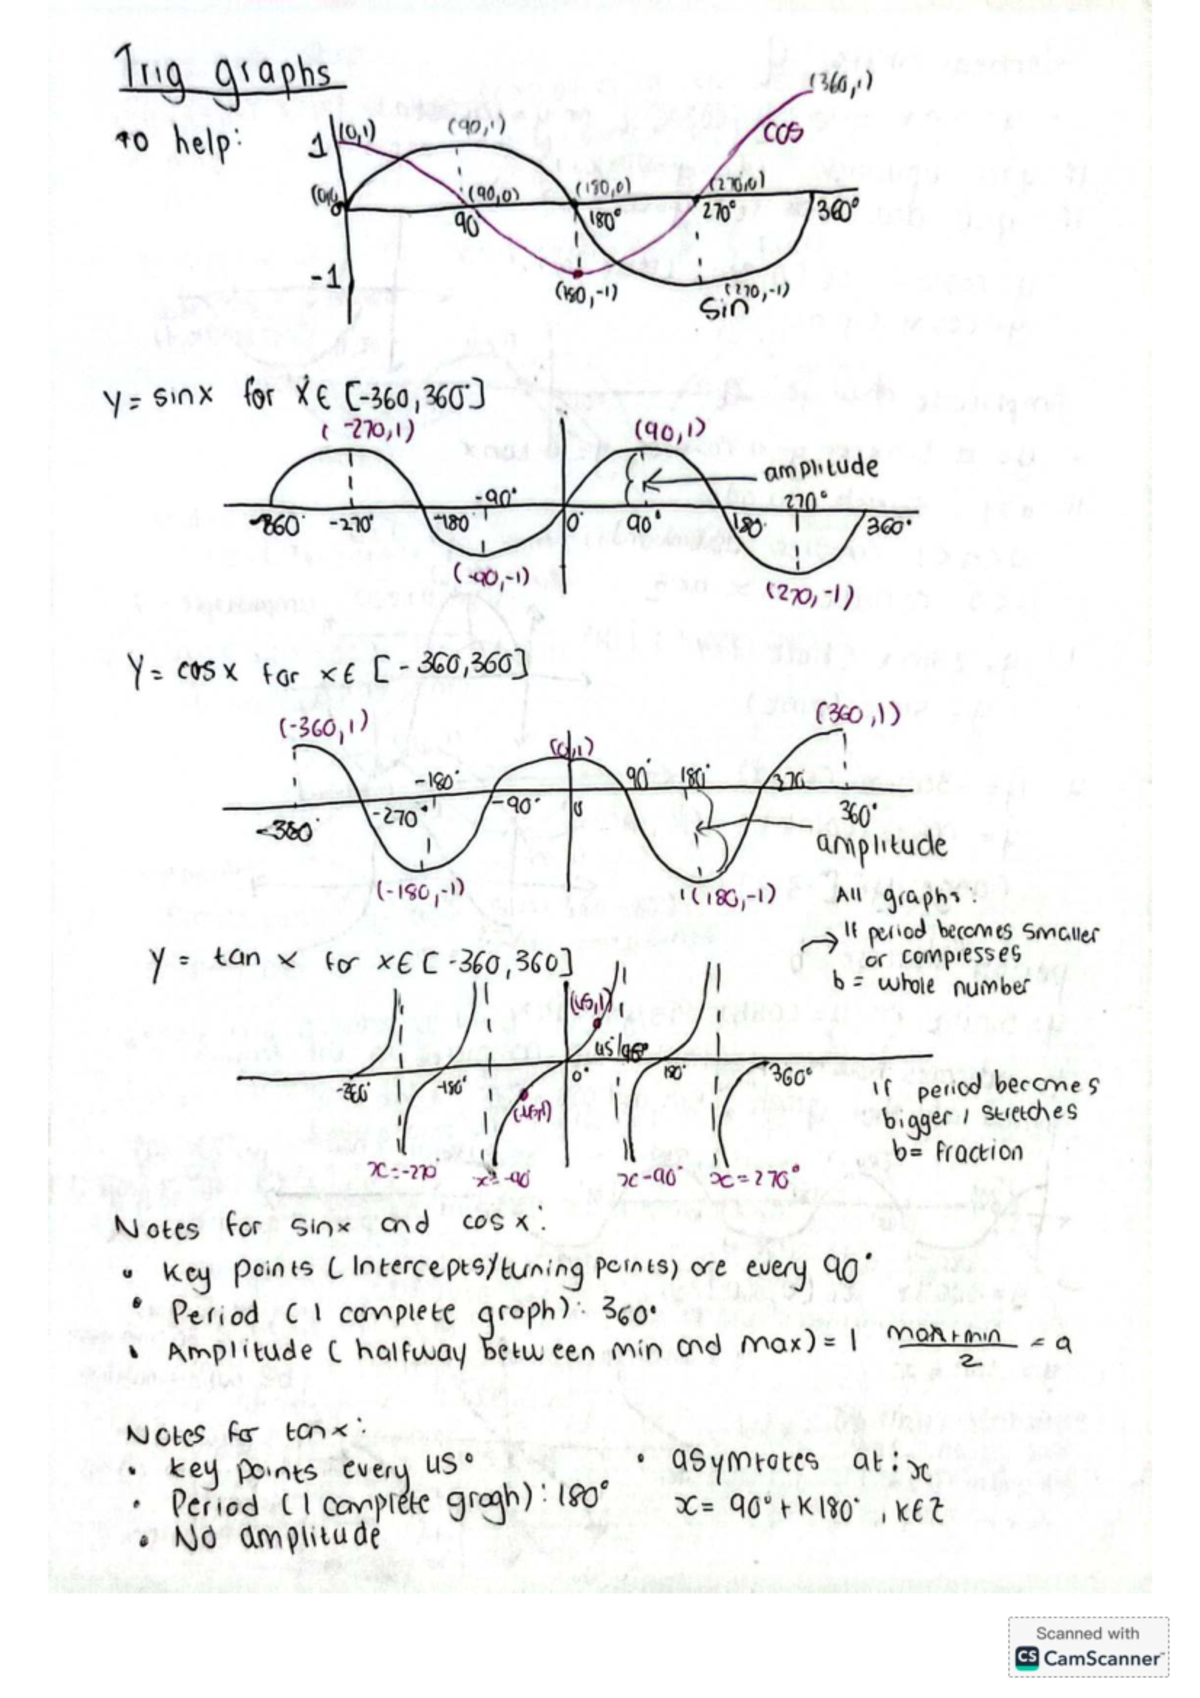 Trig graphs
to help:
(360,1)
cos
1
(0,1)
(90,1)
(90,0)
(180,0)
(270,0)
90
180°
270°
360°
-1
(180,-1)
(270,-1)
sin
y = sinx for x ∈ [-360,360°]
(-270,1)
(90,1)
amplitude
-90°
270°
-360°
-270°
-180
0°
90°
180°
360°
(-90,-1)
(270,-1)
y = cosx for x ∈ [-360,360]
(-360,1)
(0,1)
(360,1)
-180°
90°
180°
270
-360°
-270°
-90°
0
360°
amplitude
(-180,-1)
(180,-1)
All graphs:
→ If period becomes smaller
or compresses
b = whole number
y = tan x for x ∈ [-360,360]
(45,1)
45°
90°
-360°
-180°
0°
180°
360°
if period becomes
bigger / stretches
b = fraction
x=-270°
x=-90°
x=90°
x=270°
Notes for sinx and cosx:
• Key points (Intercepts/turning points) are every 90°
• Period (1 complete graph): 360°
• Amplitude (halfway between min and max) = 1 max+min/2 = a
Notes for tanx:
• key points every 45°
• Period (1 complete graph): 180°
• No amplitude
• asymtotes at: x
x = 90° + K180°, K∈Z
Scanned with
CS CamScanner